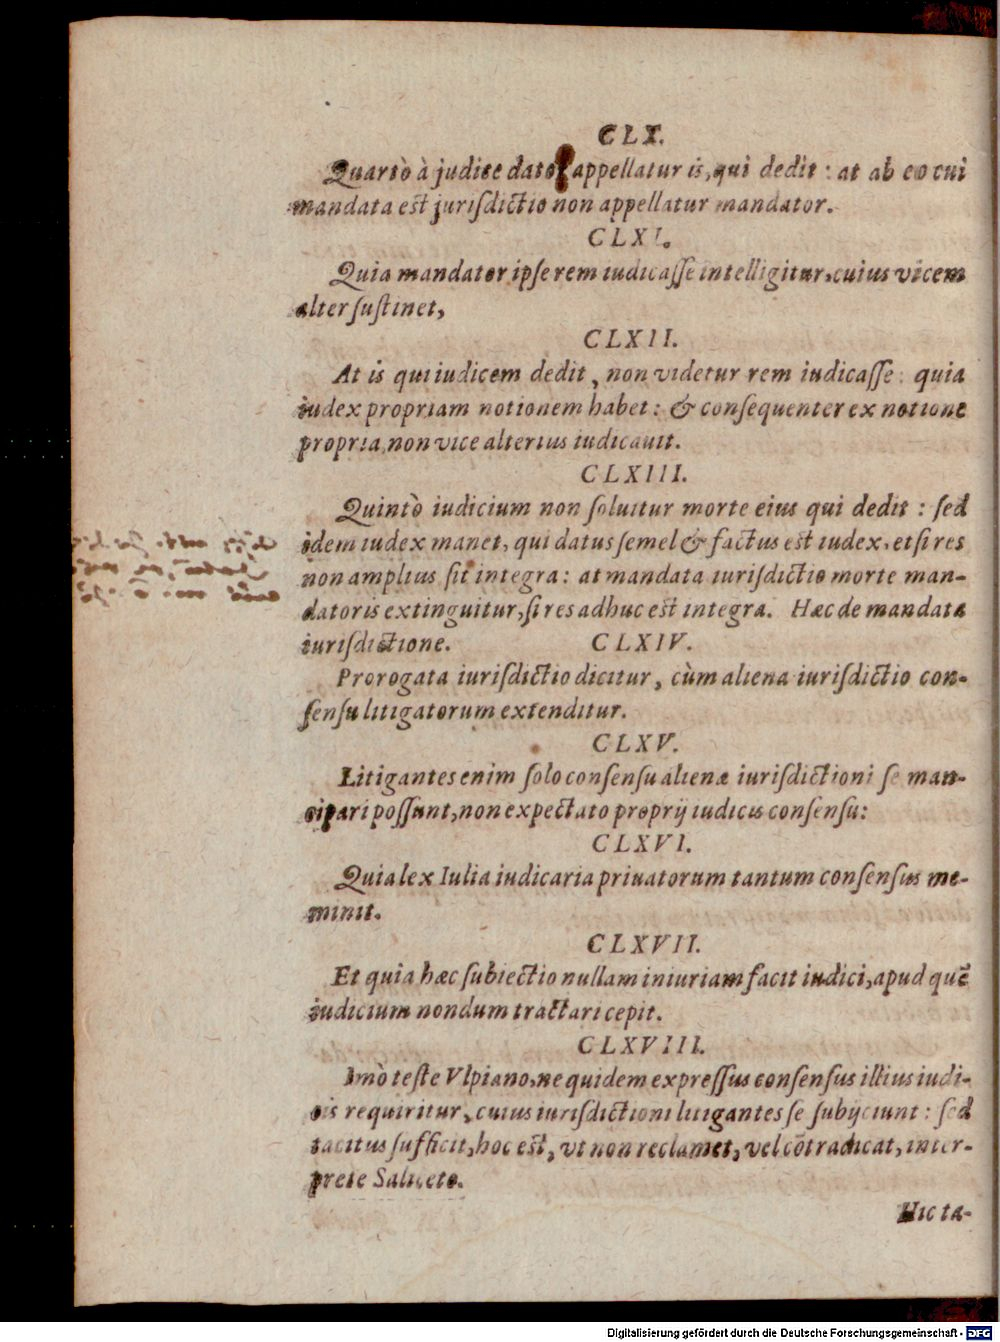 CLX.
Quartò à judice dato appellatur is, qui dedit : at ab eo cui
mandata est jurisdictio non appellatur mandator.
CLXI.
Quia mandator ipse rem iudicasse intelligitur, cuius vicem
alter sustinet,
CLXII.
At is qui iudicem dedit, non videtur rem iudicasse : quia
iudex propriam notionem habet : & consequenter ex notione
propria, non vice alterius iudicauit.
CLXIII.
Quintò iudicium non soluitur morte eius qui dedit : sed
idem iudex manet, qui datus semel & factus est iudex, etsi res
non amplius sit integra : at mandata iurisdictio morte man-
datoris extinguitur, si res adhuc est integra. Hæc de mandata
iurisdictione. CLXIV.
Prorogata iurisdictio dicitur, cùm aliena iurisdictio con-
sensu litigatorum extenditur.
CLXV.
Litigantes enim solo consensu alienæ iurisdictioni se man-
cipari possunt, non expectato proprij iudicis consensu:
CLXVI.
Quia lex Iulia iudicaria priuatorum tantum consensus me-
minit.
CLXVII.
Et quia hæc subiectio nullam iniuriam facit iudici, apud quē
iudicium nondum tractari cepit.
CLXVIII.
Imò teste Vlpiano, ne quidem expressus consensus illius iudi-
cis requiritur, cuius iurisdictioni litigantes se subijciunt : sed
tacitus sufficit, hoc est, vt non reclamet, vel cōtradicat, inter-
prete Saliceto.
Hic ta-
Digitalisierung gefördert durch die Deutsche Forschungsgemeinschaft - DFG